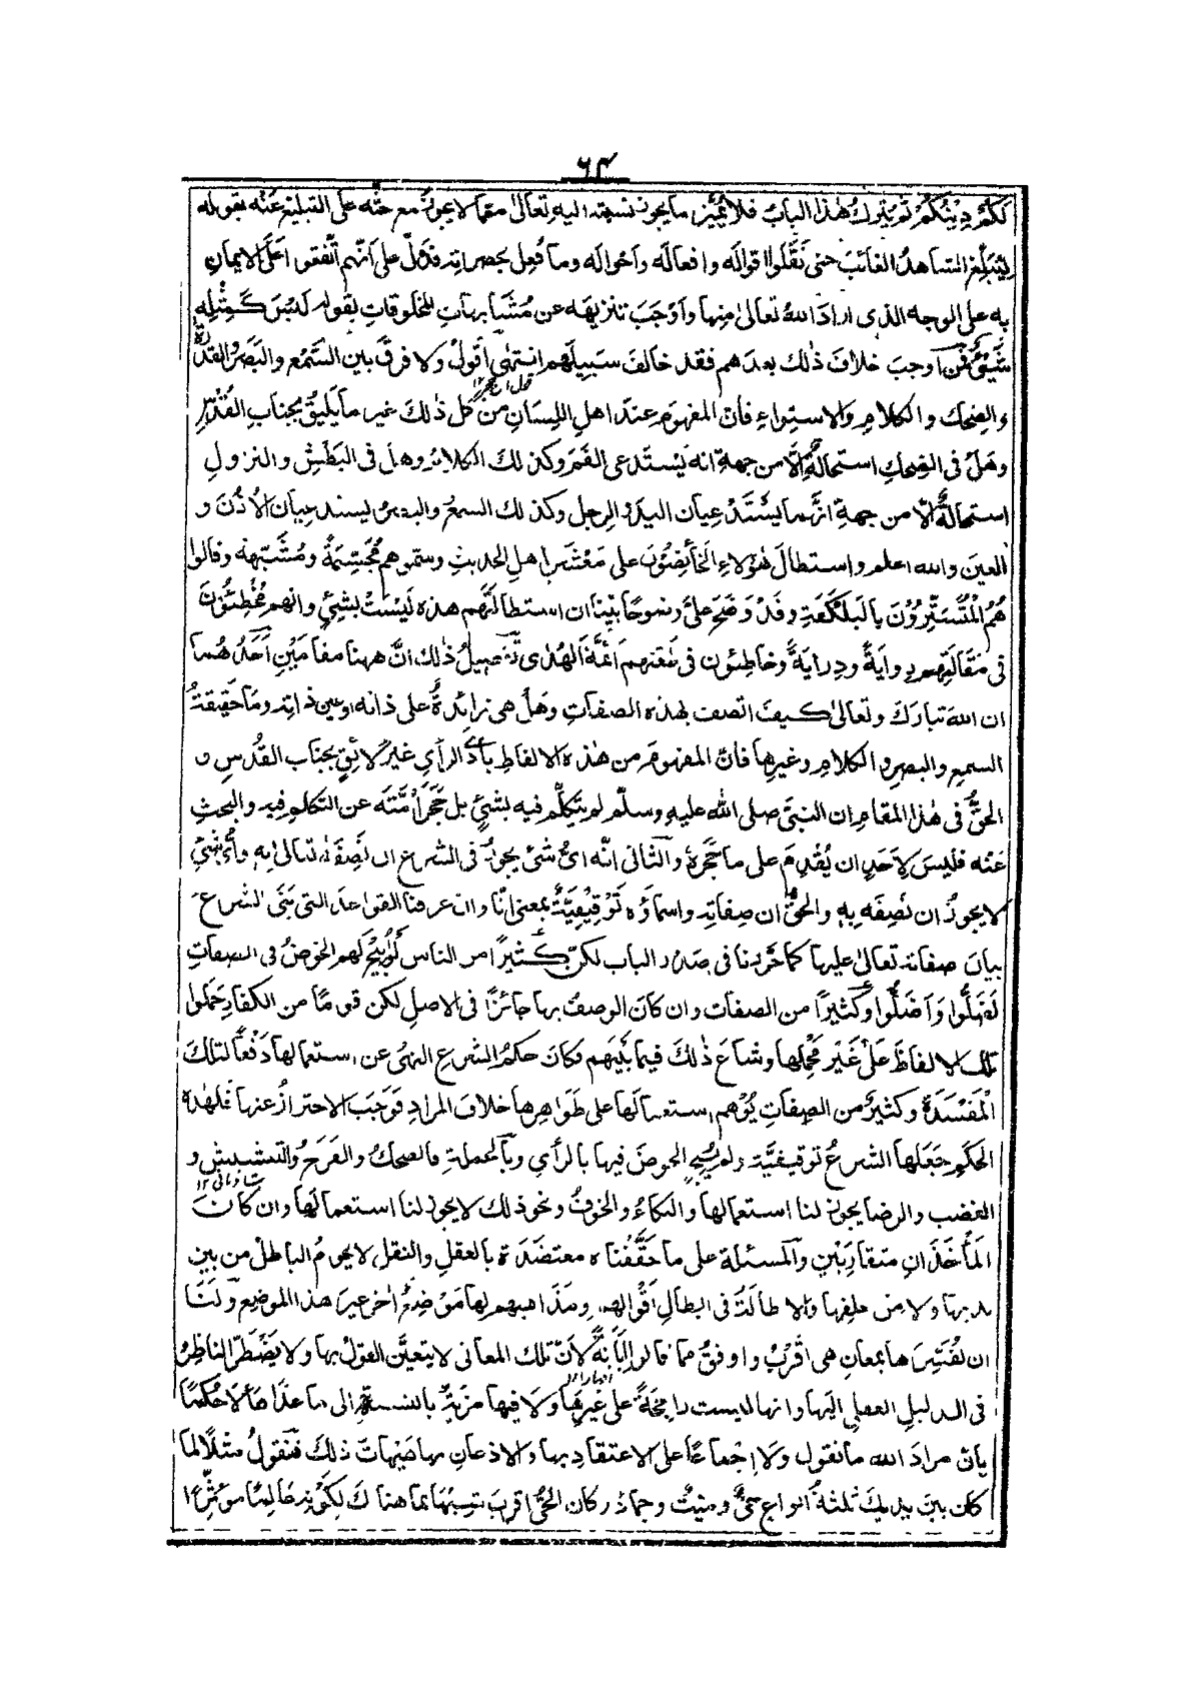 ٦٤
لَكُمْ دِيْنَكُمْ ثم يترك هٰذا الباب فلا يُمَيِّز ما يجوز نسبته اليه تعالیٰ مما لا يجوز مع حثّه على التبليغ عَنْه بقوله
لِيُبَلِّغِ الشاهدُ الغائبَ حتى نَقَلُوا اقوالَه وافعالَه واحوالَه وما فُعِل بحضراته فدَلّ على انّهم اتّفقوا علَى الايمانِ
به على الوجه الذى اراد اللهُ تعالیٰ منها واَوْجَبَ تنزيهَه عن مُشَابهاتِ المخلوقاتِ بقوله لَيْسَ كَمِثْلِهٖ
شَيْءٌ فمن اوجب خلافَ ذٰلك بعدَهم فقد خالفَ سبيلَهم انتهٰى اقولُ ولا فرق بين السَّمْعِ والبَصَرِ والقُدْرَةِ
والضِحك والكلامِ والاستِواءِ فان المفهومَ عندَ اهلِ اللِسَانِ من كل ذٰلك غير ما يَليقُ بجنابِ القُدْسِ
وهَلْ فى الضِحكِ استحالةٌ اِلَّا من جهةِ انه يَستَدعى الفَمَ وكذٰلك الكلامُ وهل فى البَطْشِ والنزولِ
استحالةٌ اِلّا من جهةِ انّهما يَسْتَدْعِيان اليدَ والرِجل وكذٰلك السمعُ والبصرُ يستدعيان الاُذُنَ و
العينَ والله اعلم واستطالَ هٰؤلاءِ الخائِضُوْنَ على مَعْشَرِ اهلِ الحديثِ وسَمَّوهم مُجَسِّمَةً ومُشَبِّهةً وقالوا
هُمُ الْمُتَسَتِّرُوْنَ بالبَلْكَفَةِ وقَدْ وَضَحَ علىَّ وضوحًا بيّنًا ان استطالتَهم هذه لَيْسَتْ بشيْءٍ وانهم مُخْطِئُوْنَ
فى مَقَالَتِهم رِوايَةً ودِرايَةً وخاطِئون فى طَعْنِهم اَئمَّةَ الهُدٰى تَفصِيلُ ذٰلك انَّ ههنا مقامَيْنِ اَحَدُهُما
ان اللهَ تبارَكَ وتعالیٰ كيفَ اتصف بهذه الصفاتِ وهَلْ هى زائدةٌ على ذاته او عين ذاتِه وما حَقِيقةُ
السمعِ والبصرِ والكلامِ وغيرِها فانّ المفهومَ من هٰذه الالفاظِ بادِىَ الرأىِ غيرُ لائقٍ بجنابِ القُدْسِ و
الحقُّ فى هٰذا المقامِ ان النبىَّ صلى الله عليه وسلّم لم يتكلّم فيه بشىْءٍ بل حَجَرَ اُمَّتَه عن التكلّم فيه والبحثِ
عَنْه فليسَ لاَحَدٍ ان يُقْدِمَ على ما حَجَرَهٗ والثانى انَّه اىُّ شئٍ يجوزُ فى الشرع ان نَصِفَهٗ تعالیٰ بِهٖ واىُّ شئٍ
لا يجوزُ ان نَصِفَه بِهٖ والحقُّ ان صِفاتِه واسماؤَه تَوْقِيْفِيَّةٌ بمعنى انّا وان عرفنا القواعدَ التى بَنَى الشرعُ
بيانَ صفاتِه تعالیٰ عليها كما حَرَّرنا فى صدرِ الباب لكنّ كثيرًا من الناسِ لو اُبِيْحَ لهم الخوضُ فى الصفاتِ
لَضَلُّوا وَاَضَلُّوا وكثيرًا من الصفاتِ وان كان الوصفُ بها جائزًا فى الاصلِ لكن قومًا من الكفارِ حَمَلوا
تلك الالفاظَ علىٰ غَيْرِ مَحْمِلِها وشاعَ ذٰلكَ فيما بَيْنَهم فكانَ حكمُ الشرعِ النهىَ عن استعمالِها دَفْعًا لتلكَ
الْمَفْسَدَةِ وكثيرٌ من الصفاتِ يُوْهِم استعمالُها على ظَواهِرِها خلافَ المرادِ فوَجَبَ الاحترازُ عنها فلهٰذه
الحِكَمِ جَعَلَها الشرعُ توقيفيَّةً ولم يُبِحِ الخوضَ فيها بالرأىِ وبالجملةِ فالضحكُ والفَرَحُ والتبشبشُ و
الغضب والرضا يجوز لنا استعمالها والبكاءُ والخوفُ ونحوُ ذٰلك لا يجوز لنا استعمالُها وان كانَ
المَأخَذانِ متقارِبَيْنِ والمسئلة على ما حَقَّقْناه معتضدةٌ بالعقلِ والنقلِ لا يحومُ الباطلُ من بينِ
يديها ولا من خلفِها والاطالَةُ فى ابطالِ اَقْوالِهم ومَذاهبِهم لها مَوْضِعٌ اٰخرُ غيرَ هذا الموضِعِ ولَنَا
ان نُفَسِّرَها بمعانٍ هى اقْرَبُ واوفقُ مما قالوا اِبَانَةً لاَنّ تلك المعانى لا يتعيَّن القولُ بها ولا يَضْطَرُّ الناظِرُ
فى الدليلِ العقلى اليها وانها ليست راجِحَةً علىٰ غَيْرِها ولا فيها مزيّةٌ بالنسبةِ الى ما عَدَاها لاَ حُكْمًا
بانّ مرادَ الله ما نقول ولا اِجْماعًا على الاعتقادِ بها والاذعانِ بها هَيْهَاتَ ذٰلك فنقولُ مثلًا لما
كان بينَ يديك ثلثةُ انواعٍ حىٌّ وميّتٌ وجمادٌ وكان الحىُّ اقربَ شِبْهًا بما هناكَ لِكَوْنِه عَالِمًا مؤثِّرًا